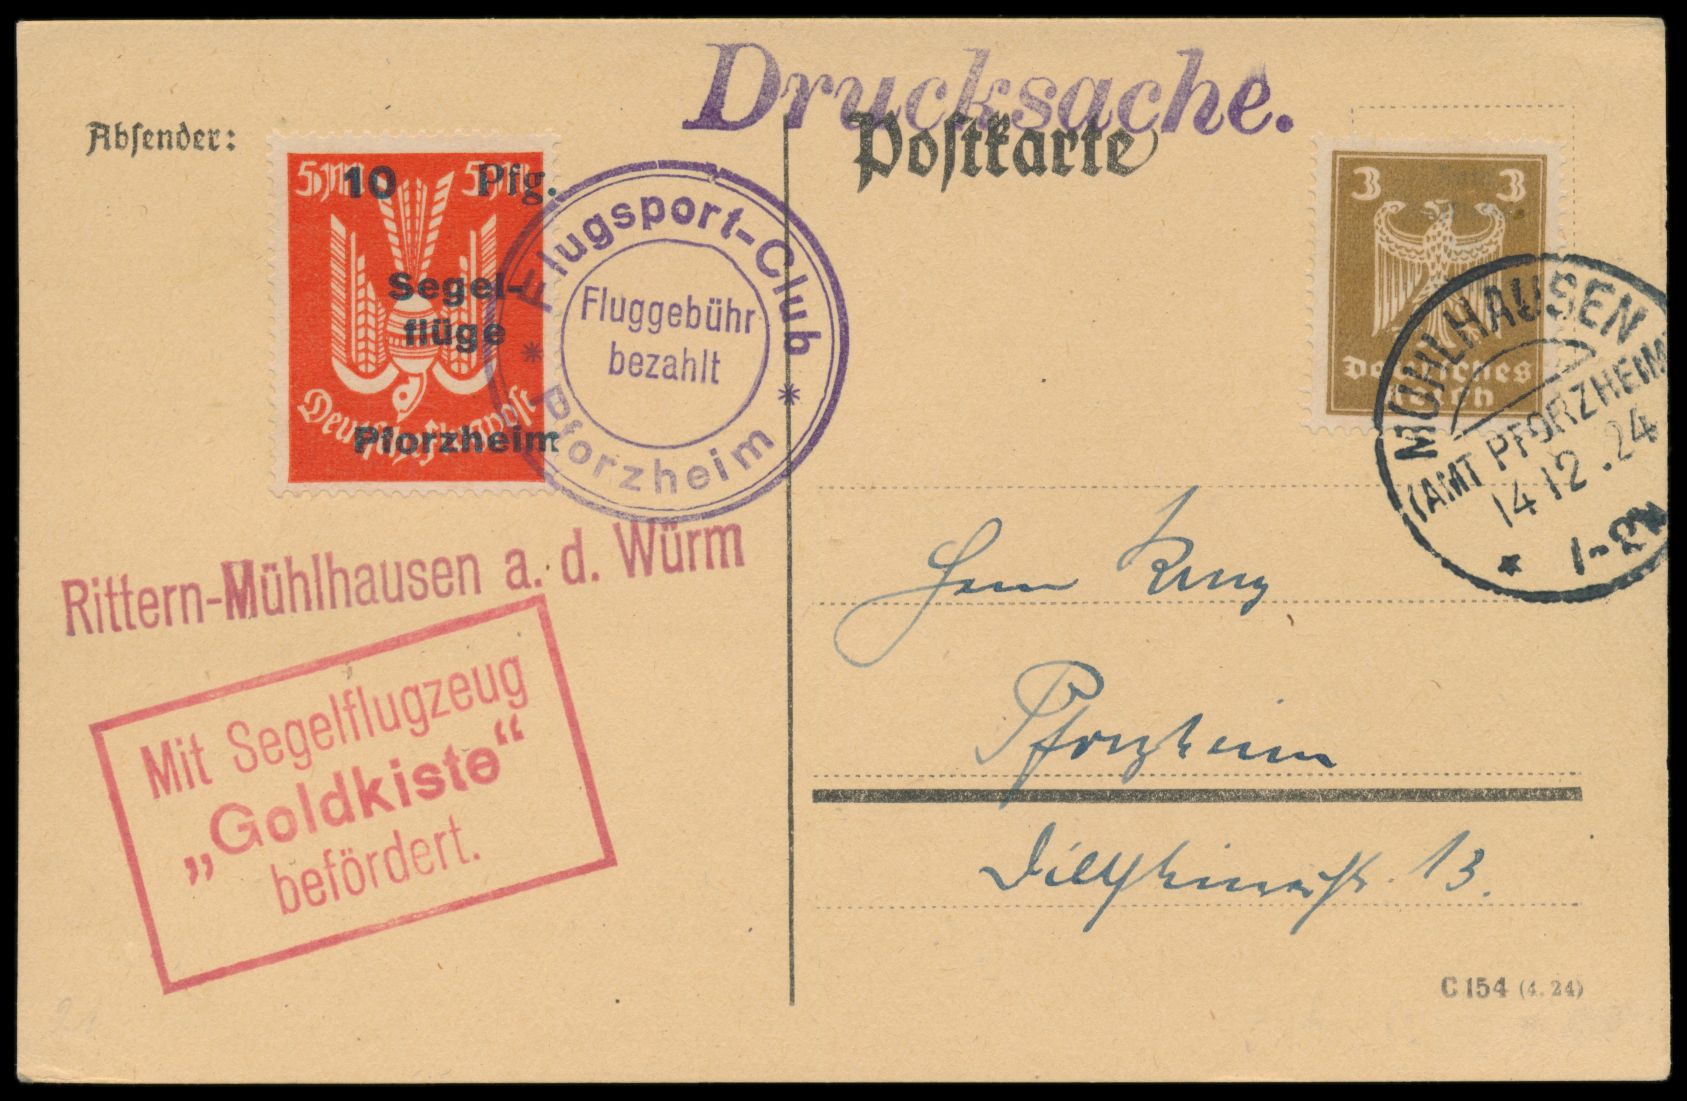 Drucksache.
Postkarte
Absender:
5M 5M
10 Pfg.
Segel-
flüge
Deutsche Flugpost
Pforzheim
Flugsport-Club
Fluggebühr
bezahlt
* Pforzheim *
3 3
Deutsches
Reich
MÜHLHAUSEN
(AMT PFORZHEIM)
14 12.24
* 1-2N
Rittern-Mühlhausen a. d. Würm
Mit Segelflugzeug
„Goldkiste“
befördert.
Herrn
Pforzheim
13.
C 154 (4. 24)